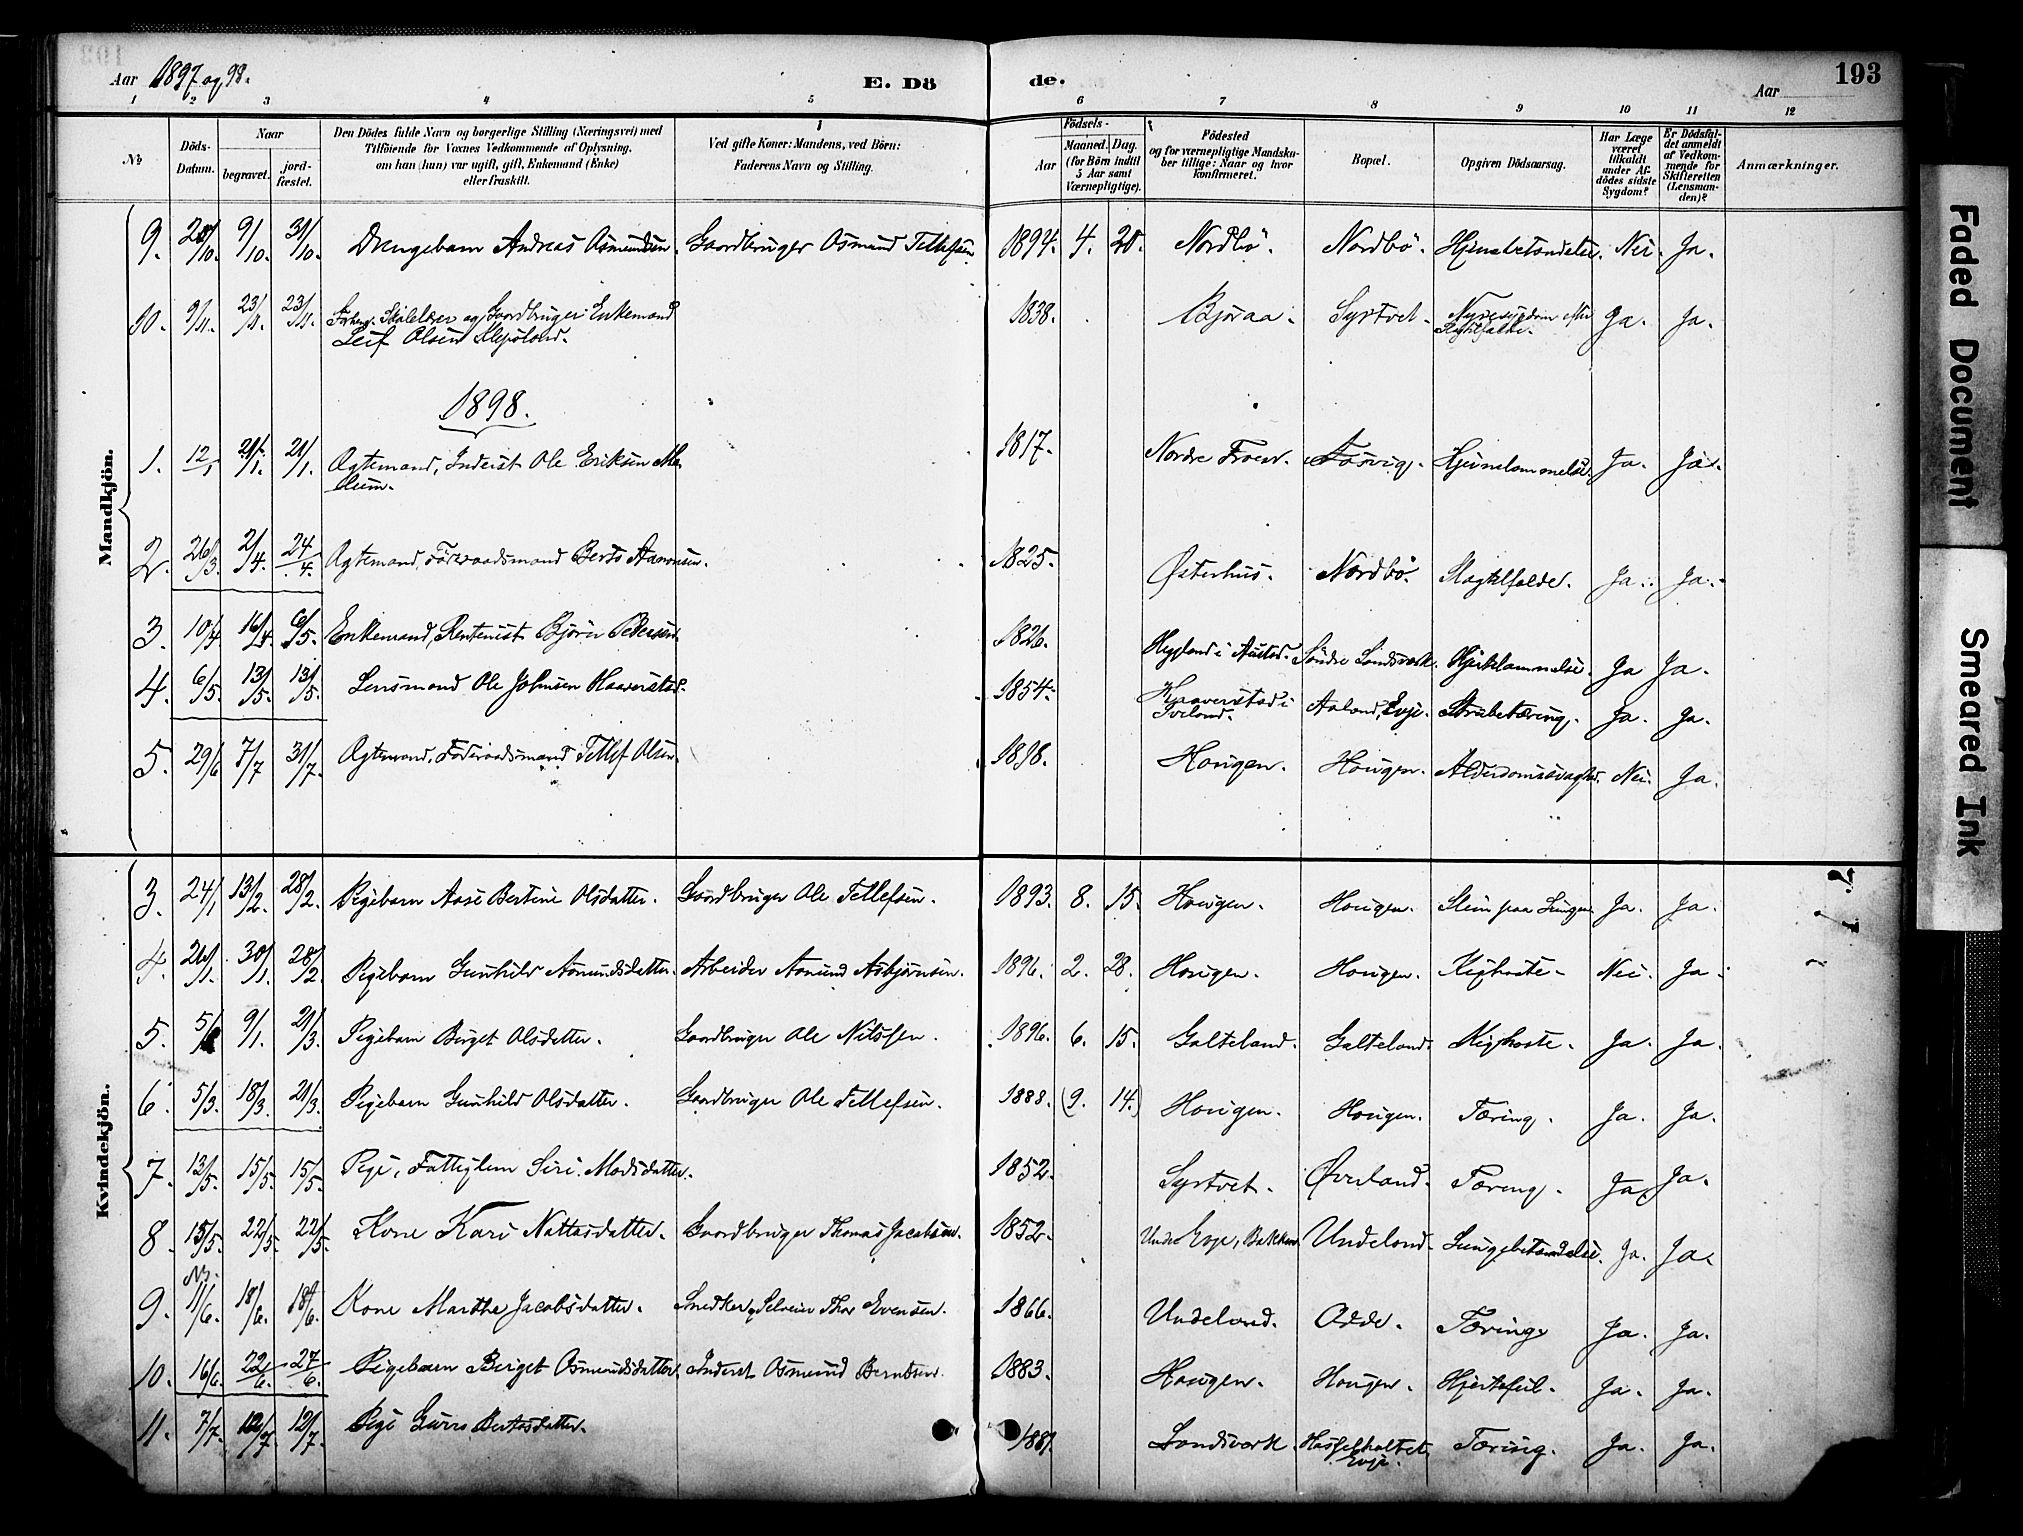 Aar 1897 og 98.
E. Dö
de.
Aar
193
1 2 3 4 5 6 7 8 9 10 11 12
No
Döds-Datum.
Naar
begravet.
jord-fæstet.
Den Dödes fulde Navn og borgerlige Stilling (Næringsvei) med
Tilföiende for Voxnes Vedkommende af Oplysning,
om han (hun) var ugift, gift, Enkemand (Enke)
eller fraskilt.
Ved gifte Koner: Mandens, ved Börn:
Faderens Navn og Stilling.
Födsels-
Aar
Maaned. Dag.
(for Börn indtil
5 Aar samt
Værnepligtige).
Födested
og for værnepligtige Mandska-
ber tillige: Naar og hvor
konfirmeret.
Bopæl.
Opgiven Dödsaarsag.
Har Læge
været
tilkaldt
under Af-
dödes sidste
Sygdom?
Er Dödsfal-
det anmeldt
af Vedkom-
mende for
Skifteretten
(Lensman-
den)?
Anmærkninger.
Mandkjön.
9. 9/10. 31/10. Drengebarn Andreas Osmundsen. Gaardbruger Osmund Tellefsen 1894. 4. 20. Nordbö. Nordbö. Nei. Ja.
10. 9/11. 23/11. 23/11. Skolelærer og Gaardbruger Enkemand 1838. Syrtvet. Ja. Ja.
Leif Olsen
1898.
1. 12/1 21/1. 21/1. Ægtemand, Inderst Ole Eriksen 1817. Nordre Ja. Ja.
2. 26/3. 2/4. 24/4. Ægtemand, Föderaadsmand Aanonsen. 1825. Østerhus. Nordbö. Slagtilfælde. Ja. Ja.
3. 10/4 16/4. 6/5. Enkemand, Rentenist Björn Pedersen. 1826. Hegland i Søndre Landsverk. Hjerteslammelse. Ja Ja.
4. 6/5. 13/5. 13/5. Lensmand Ole Johnsen Haaverstad. 1854. i Iveland. Aaland, Evje. Strubetæring. Ja. Ja.
5. 29/6 7/7 31/7. Ægtemand, Föderaadsmand Tellef Olsen. 1818. Hougen. Hougen. Alderdomssvaghed. Nei. Ja.
Kvindekjön.
3. 24/1 13/2. 28/2. Pigebarn Aase Bertine Olsdatter. Gaardbruger Ole Tellefsen. 1893. 8. 15. Hougen. Hougen. Slim paa Lungen. Ja. Ja.
4. 26/1. 30/1. 28/2 Pigebarn Gunhild Asmundsdatter. Arbeider Asmund Asbjørnsen. 1896. 2. 28. Hougen. Hougen. Kighoste. Nei. Ja.
5. 9/1. 21/3. Pigebarn Birget Olsdatter. Gaardbruger Ole Nilssen. 1896. 6. 15. Galteland. Galteland. Kighoste. Ja. Ja.
6. 5/3. 18/3. 21/3. Pigebarn Gunhild Olsdatter. Gaardbruger Ole Tellefsen. 1888. (9. 14.) Hougen. Hougen. Tæring. Ja. Ja.
7. 13/5. 15/5. 15/5. Pige, Fattiglem Siri Madsdatter. 1852. Syrtvet. Øverland. Tæring. Ja. Ja.
8. 15/5. 22/5. 22/5. Kone Kari Gaardbruger Thomas Jacobsen. 1852. Evje, Bakken. Undeland. Lungebetændelse. Ja. Ja.
9. 11/6. 18/6. 18/6. Kone Marthe Jacobsdatter. Snedker, Selveier Thor Evensen. 1866. Undeland. Odde. Tæring. Ja. Ja.
10. 16/6. 22/6. 27/6. Pigebarn Birget Osmundsdatter. Inderst Osmund Berntsen. 1883. Hougen. Hougen. Hjertefeil. Ja. Ja.
11. 7/7. 12/7 12/7. Pige 1881. Landsverk. Evje. Tæring. Ja. Ja.
Faded Document
Smeared Ink